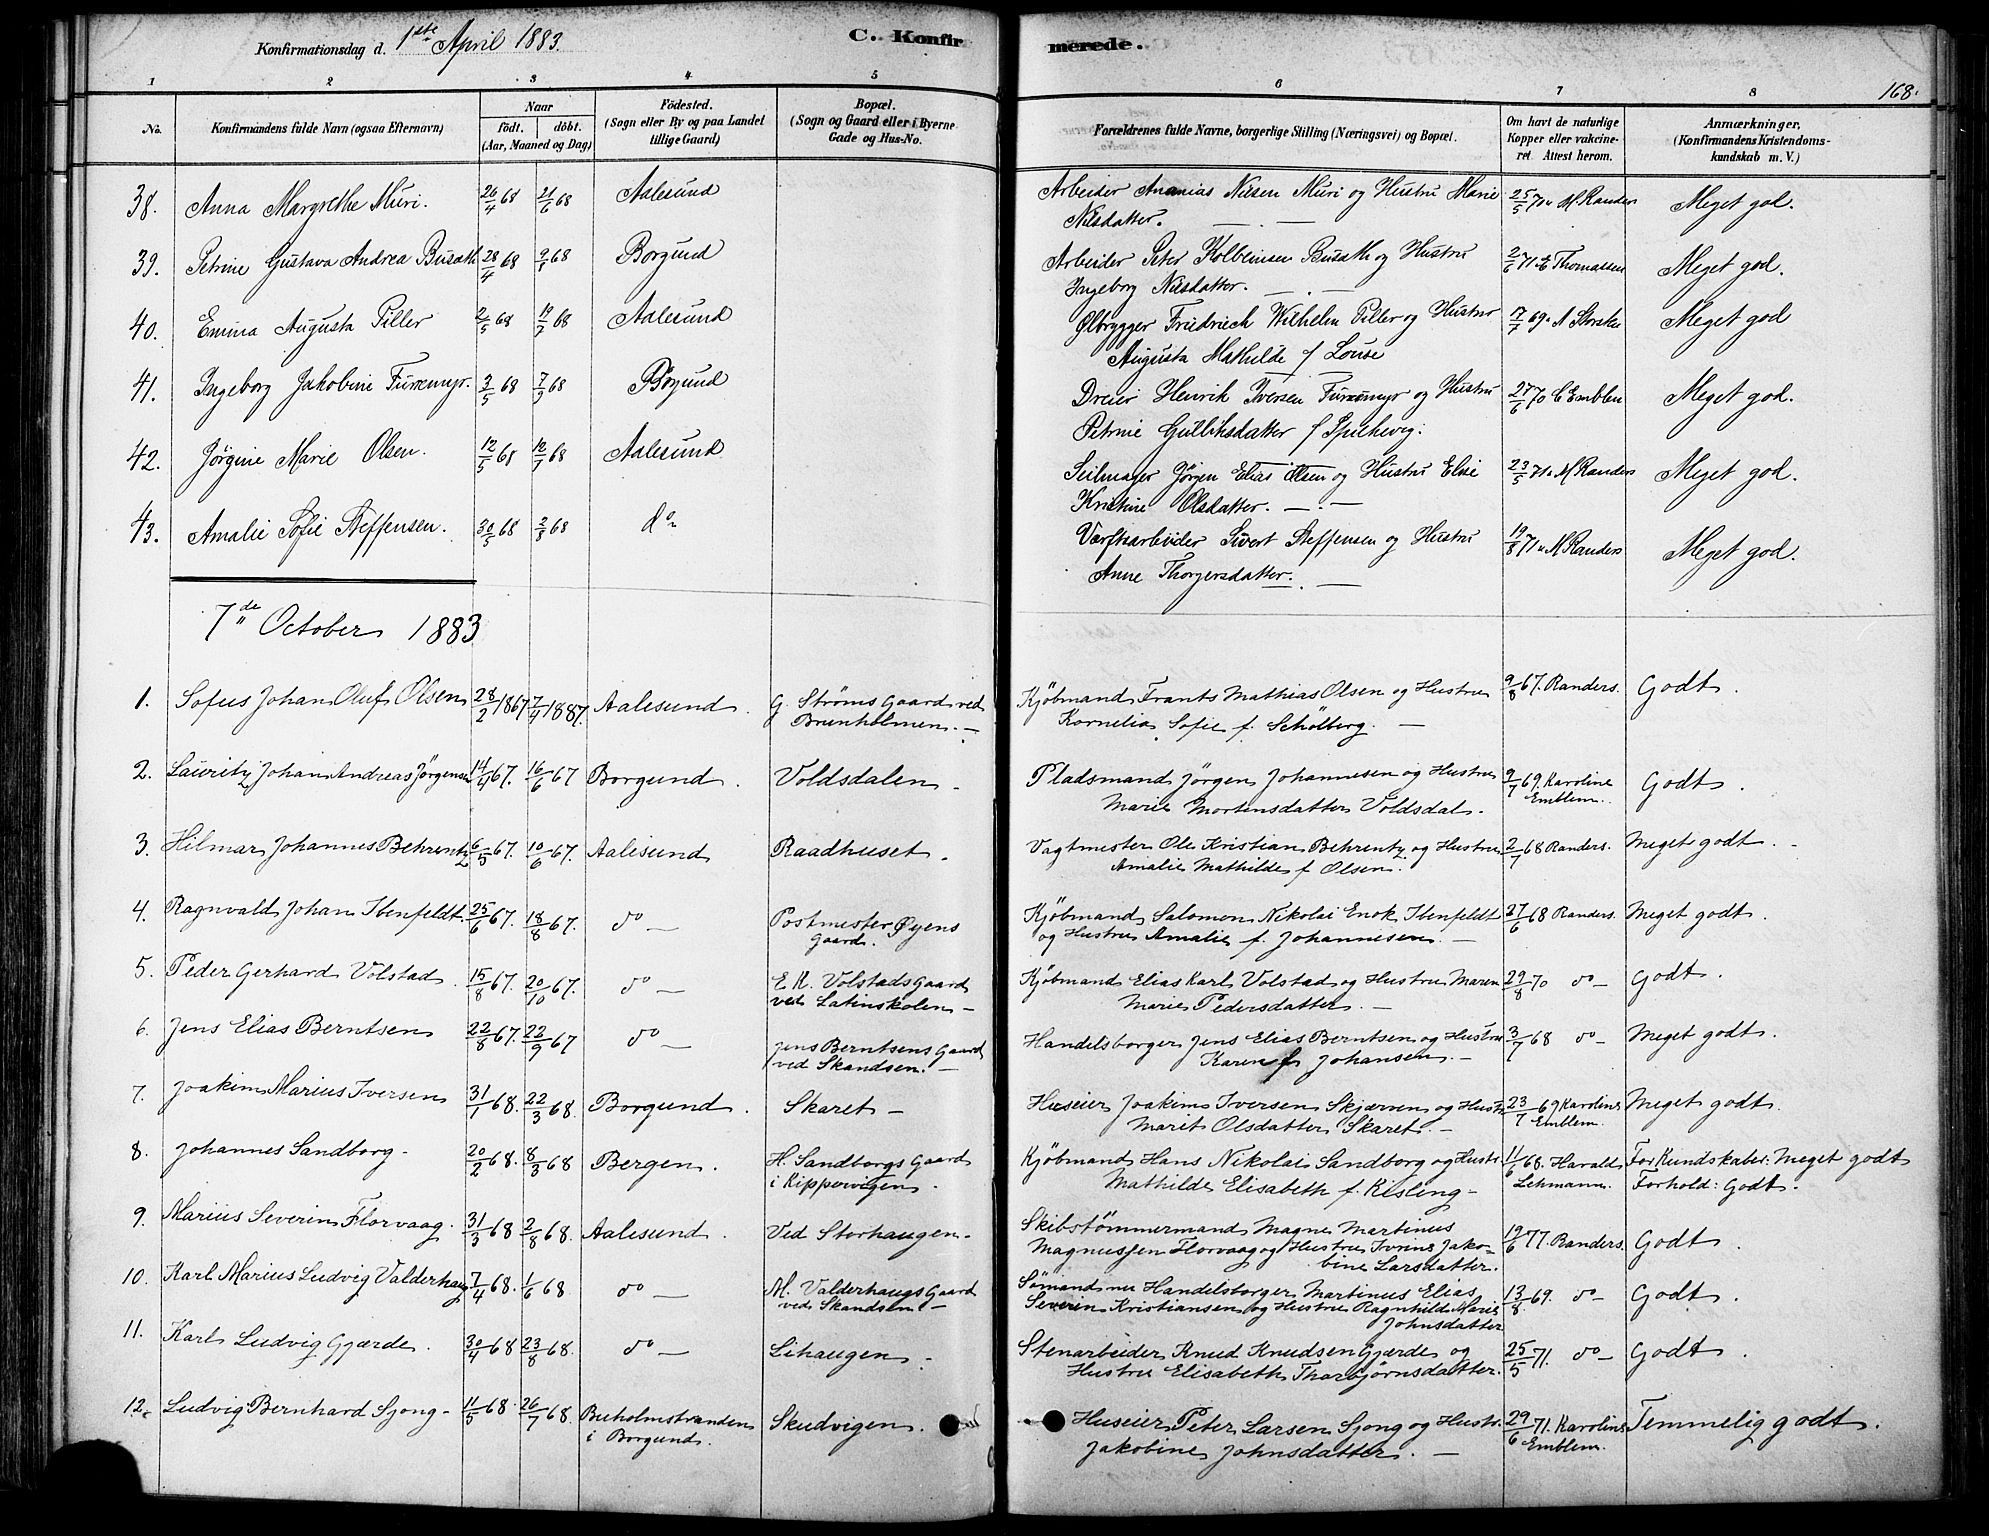 Konfirmationsdag d. 1ste April 1883.
C. Konfirmerede.
168.
1 2 3 4 5 6 7 8
No.
Konfirmandens fulde Navn (ogsaa Efternavn)
Naar
födt. döbt.
(Aar, Maaned og Dag)
Födested.
(Sogn eller By og paa Landet
tillige Gaard)
Bopæl.
(Sogn og Gaard eller i Byerne
Gade og Hus-No.
Forældrenes fulde Navne, borgerlige Stilling (Næringsvei) og Bopæl.
Om havt de naturlige
Kopper eller vakcine-
ret Attest herom.
Anmærkninger,
(Konfirmandens Kristendoms-
kundskab m. V.)
38. Anna Margrethe Muri. 26/4 68 21/6 68 Aalesund Arbeider Ananias Nilsen Muri og Hustru Marie 25/5 70 M Randers Meget god.
Nilsdatter.
39. Petrine Gustava Andrea Busæth 28/4 68 68 Borgund Arbeider Peter Kolbeinsen Busæth og Hustru 2/6 71 Thomassen Meget god.
Ingeborg Nilsdatter.
40. Emma Augusta Piller 2/5 68 19/7 68 Aalesund Ølbrygger Friedriech Wilhelm Piller og Hustru 17/7 69 Meget god
Augusta Mathilde f Louse
41. Ingeborg Jakobine Furremyr. 3/5 68 7/9 68 Borgund Dreier Henrik Iversen Furremyr og Hustru 27/6 70 C Emblem Meget god.
Petrine Gulliksdatter f Spilkevig.
42. Jørgine Marie Olsen. 12/5 68 12/7 68 Aalesund Seilmager Jørgen Elias Olsen og Hustru Elise 23/5 71 M Randers Meget god.
Kristine Olsdatter.
43. Amalie Sofie Steffensen. 30/5 68 2/8 68 do Værftarbeider Sivert Steffensen og Hustru 19/8 71 M Randers Meget god.
Anne Thorgersdatter.
7de October 1883
1. Sofus Johan Oluf Olsen 28/2 1867 7/4 1887. Aalesund. G. Strøms Gaard ved Kjöbmand Frants Mathias Olsen og Hustru 9/8 67. Randers. Godt.
Brunholmen. Kornelia Sofie f. Schölberg.
2. Lauritz Johan Andreas Jörgensen 14/4 67. 16/6 67 Borgund. Voldsdalen Pladsmand Jörgen Johannesen og Hustru 9/7 69. Karoline Godt.
Marie Mortensdatter Voldsdal. Emblem.
3. Hilmar Johannes Behrentz 6/5 67. 10/6 67. Aalesund Raadhuset. Vagtmester Ole Kristian Behrentz og Hustru 2/7 68 Randers. Meget godt.
Amalie Mathilde f Olsen.
4. Ragnvald Johan Ibenfeldt. 25/6 67. 18/8 67. do Postmester Øyens Kjöbmand Salomon Nikolai Enok Ibenfeldt 27/6 68 Randers. Meget godt.
Gaard. og Hustru Amalie f. Johannesen.
5. Peder Gerhard Volstad. 15/8 67. 20/10 67. do E K. Volstads Gaard Kjöbmand Elias Karl Volstad og Hustru Maren 29/8 70 do Godt.
ved Latinskolen Marie Pedersdatter.
6. Jens Elias Berntsen 22/8 67. 22/9 67 do Jens Berntsens Gaard Handelsborger Jens Elias Berntsen og Hustru 3/7 68 do Meget godt.
ved Skandsen. Karen f Johansen.
7. Joakim Marius Iversen 31/1 68. 22/3 68. Borgund. Skaret Huseier Joakim Iversen Skjærven og Hustr. 23/7 69 Karoline Meget godt.
Marit Olsdatter Skaret. Emblem.
8. Johannes Sandborg 20/2 68. 8/3 68 Bergen. H. Sandborgs Gaard Kjöbmand Hans Nikolai Sandborg og Hustr. 11/6 68. Harald For Kundskaber: Meget godt
i Kippervigen. Mathilde Elisabeth f. Kisling Lehmann. Forhold: Godt.
9. Marius Severin Florvaag. 31/3 68 2/8 68. Aalesund. Ved Storhaugen. Skibstömmermand Magne Martinus 19/6 77. Randers. Godt.
Magnussen Florvaag og Hustru Ivrine Jako-
bine Larsdatter.
10. Karl Marius Ludvig Valderhaug 7/4 68. 1/6 68 do M. Valderhaugs Gaard Sömand nu Handelsborger Martinus Elias 13/8 69. do Godt.
ved Skandsen Severin Kristiansen og Hustru Ragnhild Marie
Johnsdatter
11. Karl Ludvig Gjærde. 30/4 68 23/8 68. do Lihaugen Stenarbeider Knud Knudsen Gjærde og 25/5 71. do Godt.
Hustru Elisabeth Thorbjörnsdatter.
12. Ludvig Bernhard Sjong 11/5 68. 26/7 68. Buholmstranden Skudvigen. Huseier Peter Larsen Sjong og Hustr. 29/6 71. Karoline Temmelig godt.
i Borgund. Jakobine Johnsdatter. Emblem.